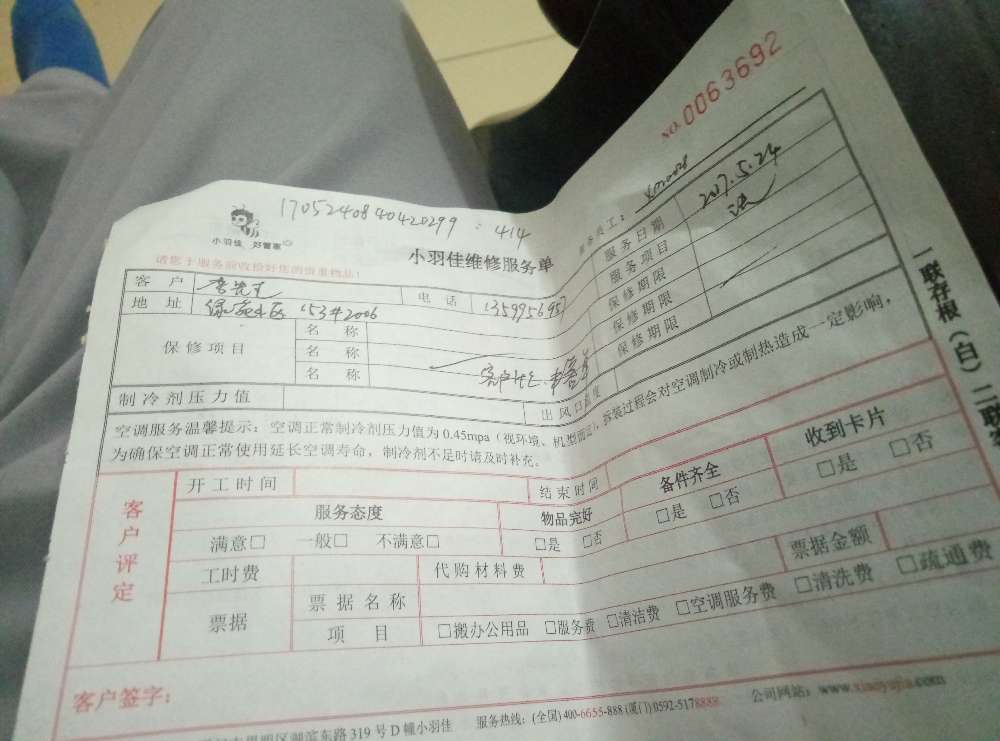 NO. 0063692
1705240840420299 : 414
小羽佳 好管家
小羽佳维修服务单
请您于服务前收检好您的贵重物品!
服务员工:
服务日期 2017.5.24
服务项目
保修期限
保修期限
保修期限
客户 李先生 电话
地址 153#2006
保修项目
名称
名称
名称
制冷剂压力值 出风口温度
空调服务温馨提示:空调正常制冷剂压力值为0.45mpa(视环境、机型而定),拆装过程会对空调制冷或制热造成一定影响,
为确保空调正常使用延长空调寿命,制冷剂不足时请及时补充。
客户评定
开工时间 结束时间
服务态度 物品完好 备件齐全 收到卡片
满意□ 一般□ 不满意□ □是 □否 □是 □否 □是 □否
工时费 代购材料费 票据金额
票据
票据名称
项目 □搬办公用品 □服务费 □清洁费 □空调服务费 □清洗费 □疏通费
客户签字:
湖滨东路319号D幢小羽佳 服务热线:(全国)400-6655-888(厦门)0592-5178888 公司网站:www.xiaoyujia.com
一联存根(白)二联客